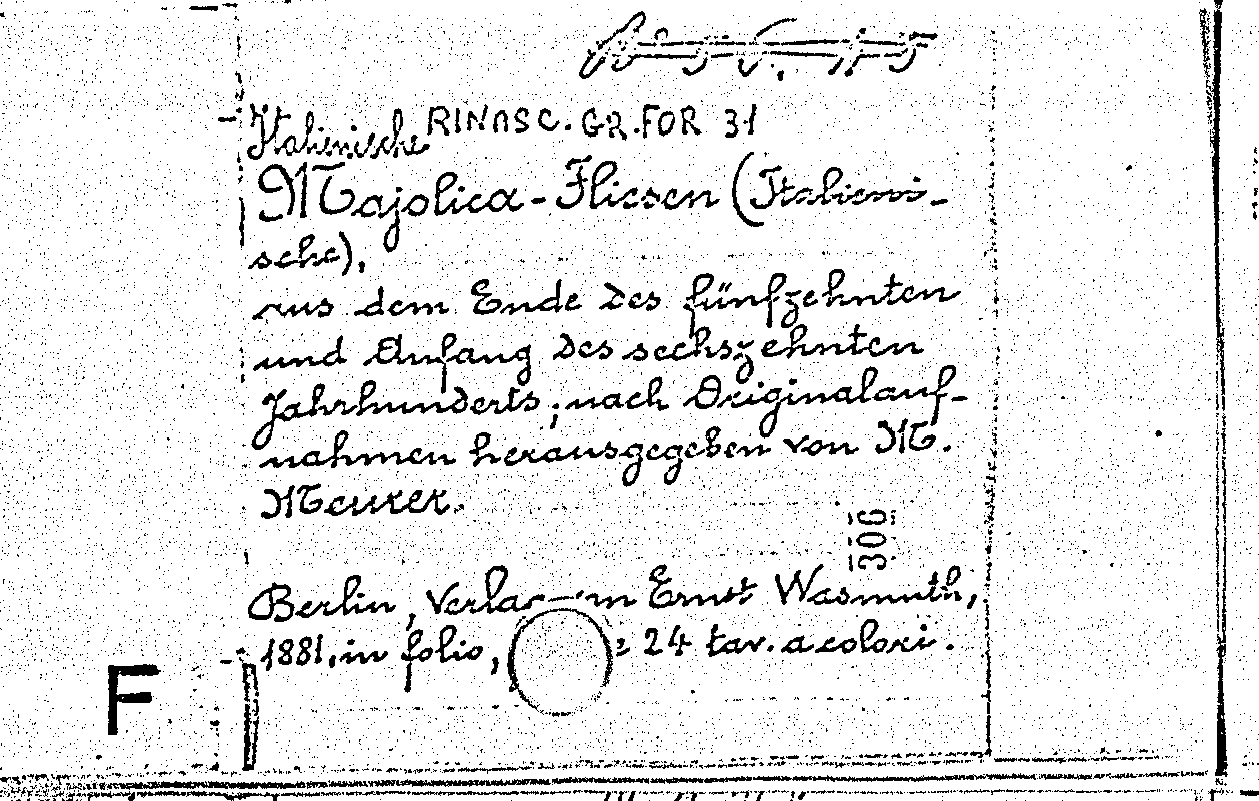 Italienische RINASC. GR. FOR 31
Majolica-Fliesen (Italieni-
sche),
aus dem Ende des fünfzehnten
und Anfang des sechszehnten
Jahrhunderts; nach Originalauf-
nahmen herausgegeben von M.
Meurer.
306
Berlin, Verlag Ernst Wasmuth,
1881, in folio, 24 tav. a colori.
F